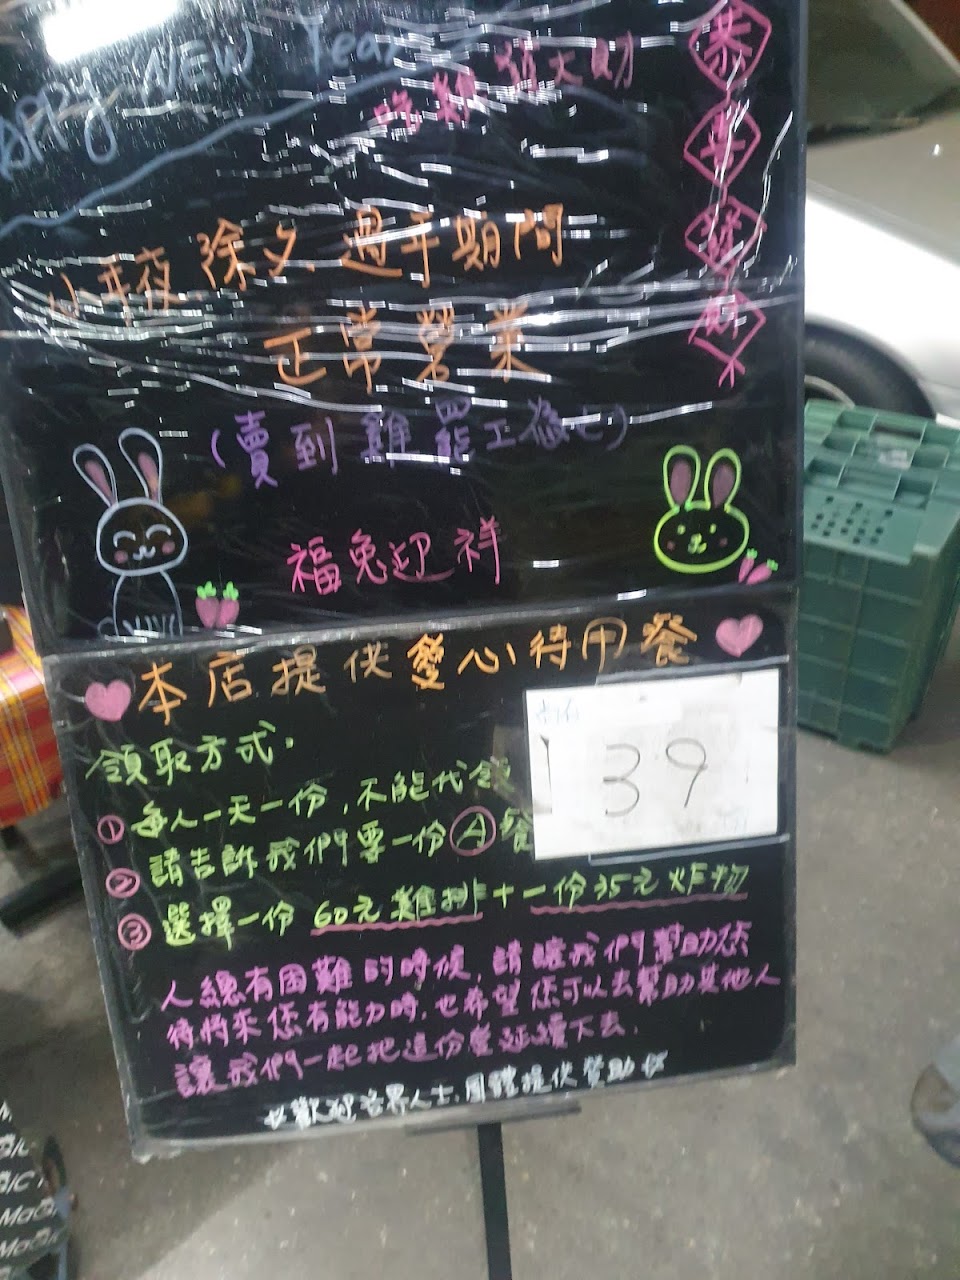 Happy NEW Year
吃雞 發大財
恭
喜
發
財
小年夜 除夕 過年期間
正常營業
(賣到雞罷工為止)
福兔迎祥
本店提供愛心待用餐
尚有
39
領取方式.
① 每人一天一份,不能代領
② 請告訴我們要一份Ⓐ餐
③ 選擇一份 60元雞排+一份35元炸物
人總有困難的時候,請讓我們幫助您
待將來您有能力時,也希望您可以去幫助其他人
讓我們一起把這份愛延續下去.
歡迎各界人士.團體提供贊助
MaGiC